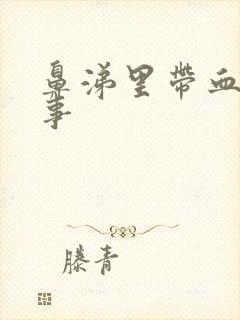 鼻涕里带血
事
滕青